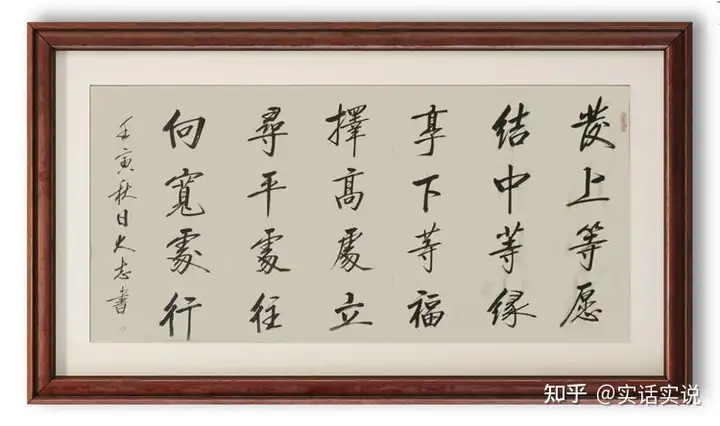 發上等愿
结中等缘
享下等福
擇高處立
尋平處住
向寬處行
壬寅秋日大志書
知乎 @实话实说